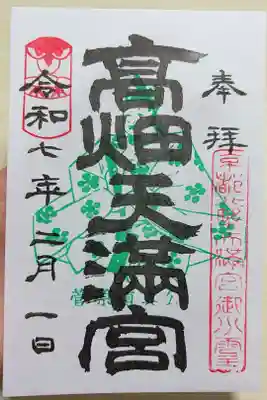 奉拝
高畑天満宮
令和七年二月一日